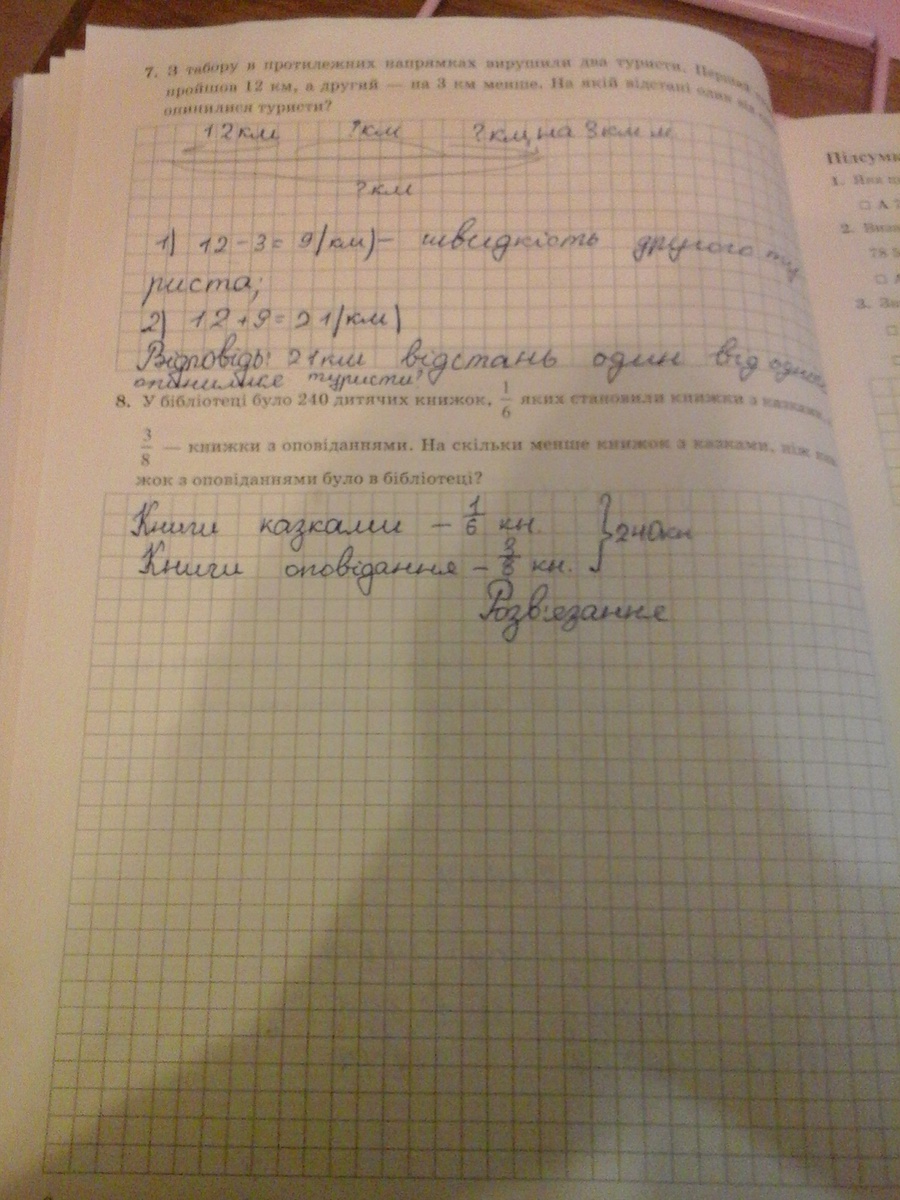 7. З табору в протилежних напрямках вирушили два туристи. Перший
пройшов 12 км, а другий — на 3 км менше. На якій відстані один від
опинилися туристи?
12км ?км ?км, на 3км м
?км
1) 12-3=9(км)- швидкість другого ту
риста;
2) 12+9=21(км)
Відповідь: 21км відстань один від одного
туристи?
8. У бібліотеці було 240 дитячих книжок, 1/6 яких становили книжки з казками,
3/8 — книжки з оповіданнями. На скільки менше книжок з казками, ніж
жок з оповіданнями було в бібліотеці?
Книги казками - 1/6 кн.
Книги оповідання - 3/8 кн. } 240кн
Розв'язання
Підсумк
1. Яка
А 7
2.
78 5
3.